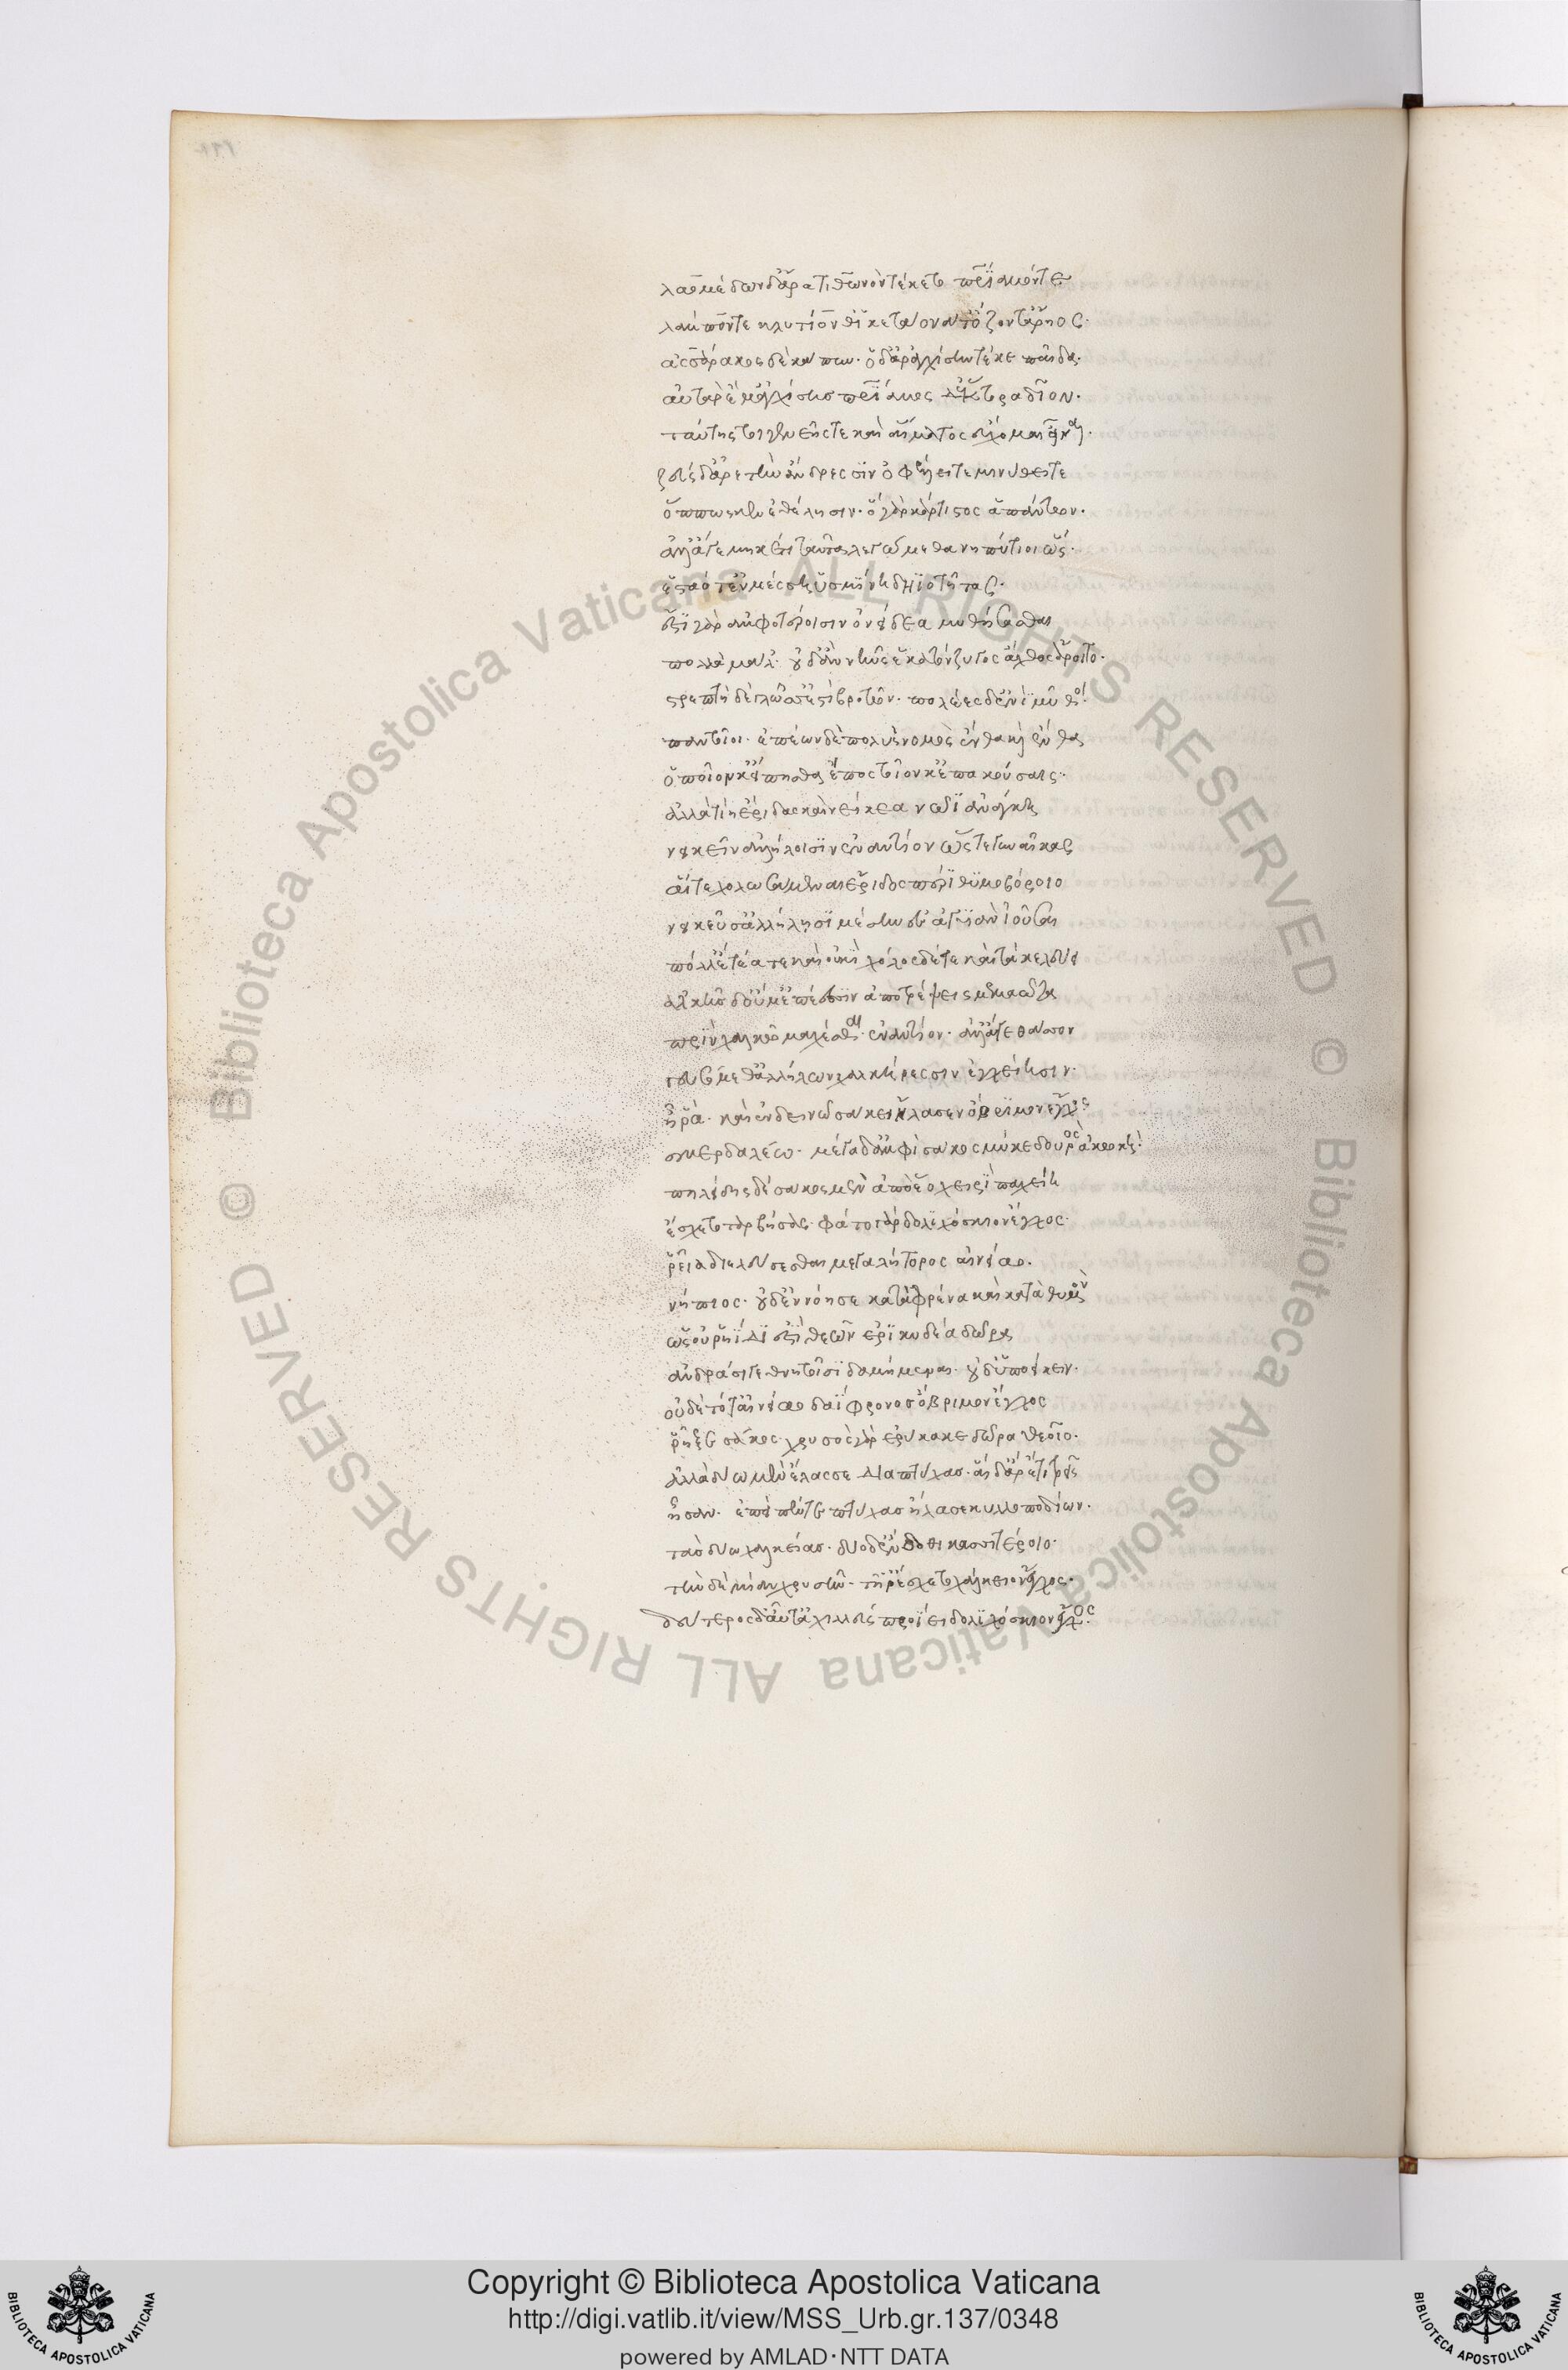 λαομέδων δ' ἄρα τιθωνὸν τέκετο πρίαμόν τε
λάμπόν τε κλυτίον θ' ἱκετάονα τ' ὄζον τ' ἄρηος·
ἀσσάρακος δὲ κάπυν· ὃ δ' ἄρ' ἀγχίσην τέκε παῖδα·
αὐτὰρ ἔμ' ἀγχίσης πρίαμος δ' ἕκτορα δῖον·
ταύτης τοι γενεῆς τε καὶ αἵματος εὔχομαι εἶναι·
ζεὺς δ' ἀρετὴν ἄνδρεσσιν ὀφέλλει τε μινύθει τε
ὅππως κεν ἐθέλησιν· ὁ γὰρ κάρτιστος ἁπάντων·
ἀλλ' ἄγε μηκέτι ταῦτα λεγώμεθα νηπύτιοι ὥς·
ἑσταότ' ἐν μέσση ὑσμίνη δηϊοτῆτος·
ἔστι γὰρ ἀμφοτέροισιν ὀνείδεα μυθήσασθαι
πολλὰ μάλ'· οὐδ' ἂν νηῦς ἑκατόνζυγος ἄχθος ἄροιτο·
στρεπτὴ δὲ γλῶσσ' ἐστὶ βροτῶν· πολέες δ' ἔνι μῦθοι·
παντοῖοι· ἐπέων δὲ πολὺς νομὸς ἔνθα καὶ ἔνθα
ὁποῖον κ' εἴπησθα ἔπος τοῖον κ' ἐπακούσαις·
ἀλλὰ τίη ἔριδας καὶ νείκεα νῶϊ ἀνάγκη
νεικεῖν ἀλλήλοισιν ἐναντίον ὥς τε γυναῖκας
αἵ τε χολωσάμεναι ἔριδος πέρι θυμοβόροιο
νεικεῦσ' ἀλλήλησι μέσην ἐς ἄγυιαν ἰοῦσαι
πόλλ' ἐτεά τε καὶ οὐκί χόλος δέ τε καὶ τὰ κελεύει
ἀλκῆς δ' οὔ μ' ἐπέεσσιν ἀποτρέψεις μεμαῶτα
πρὶν χαλκῷ μαχέσασθαι· ἐναντίον· ἀλλ' ἄγε θᾶσσον
γευσόμεθ' ἀλλήλων χαλκήρεσσιν ἐγχείησιν·
ἦ ῥά· καὶ ἐν δεινῷ σάκει ἤλασεν ὄβριμον ἔγχος
σμερδαλέω· μέγα δ' ἀμφὶ σάκος μύκε δουρὸς ἀκωκῆ·
πηλείδης δὲ σάκος μὲν ἀπὸ ἕο χειρὶ παχείη
ἔσχετο ταρβήσας· φάτο γὰρ δολιχόσκιον ἔγχος·
ῥεῖα διελεύσεσθαι μεγαλήτορος αἰνείαο·
νήπιος· οὐδ' ἐνόησε κατὰ φρένα καὶ κατὰ θυμὸν
ὡς οὐ ῥηΐδι' ἐστὶ θεῶν ἐρικυδέα δῶρα
ἀνδράσι γε θνητοῖσι δαμήμεναι· οὐδ' ὑποείκειν·
οὐδὲ τότ' αἰνείαο δαΐφρονος ὄβριμον ἔγχος
ῥῆξε σάκος· χρυσὸς γὰρ ἐρύκακε δῶρα θεοῖο·
ἀλλὰ δύω μὲν ἔλασσε διὰ πτύχας· αἱ δ' ἄρ' ἔτι τρεῖς
ἦσαν· ἐπεὶ πέντε πτύχας ἤλασε κυλλοποδίων·
τὰς δύω χαλκείας· δύο δ' ἔνδοθι κασσιτέροιο·
τὴν δὲ μίαν χρυσῆν· τῆ ῥ' ἔσχετο χάλκειον ἔγχος·
δεύτερος δ' αὖτ' ἀχιλλεὺς προΐει δολιχόσκιον ἔγχος·
Copyright © Biblioteca Apostolica Vaticana
http://digi.vatlib.it/view/MSS_Urb.gr.137/0348
powered by AMLAD·NTT DATA